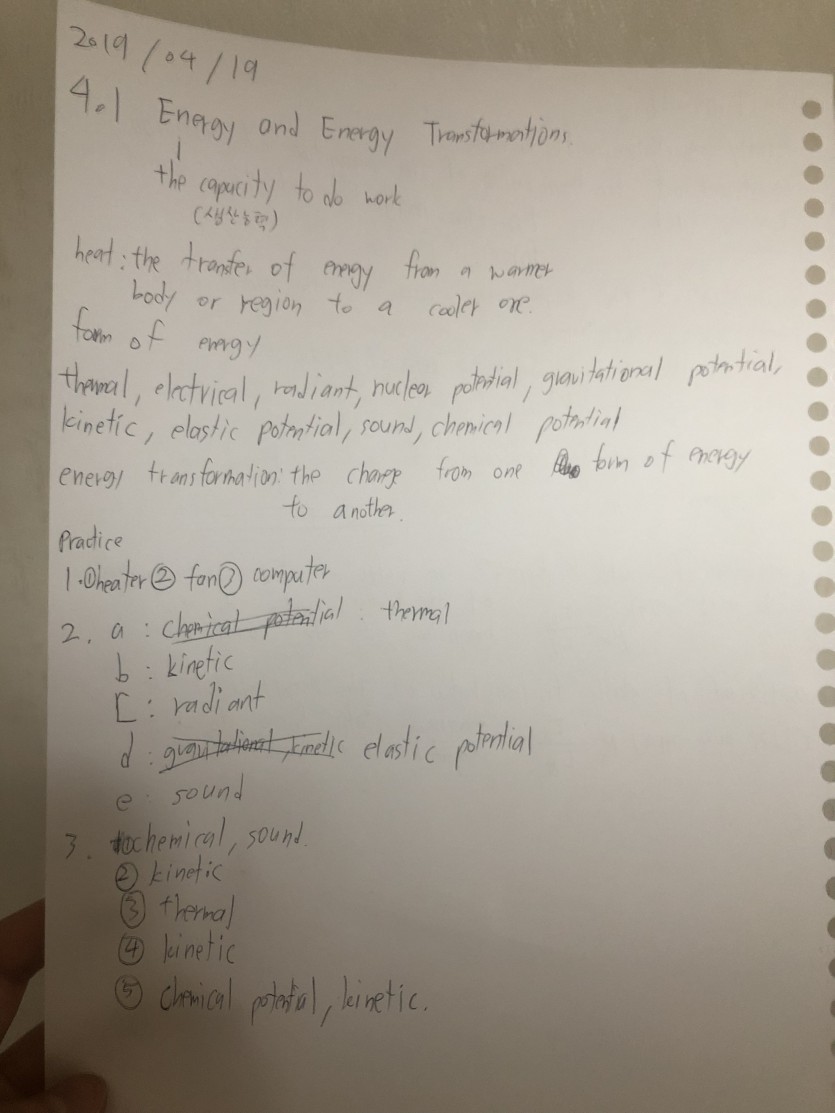 2019/04/19
4.1 Energy and Energy Transformations.
the capacity to do work
(생산능력)
heat: the transfer of energy from a warmer
body or region to a cooler one.
form of energy
thermal, electrical, radiant, nuclear potential, gravitational potential,
kinetic, elastic potential, sound, chemical potential
energy transformation: the change from one form of energy
to another.
Practice
1. ① heater ② fan ③ computer
2. a : chemical potential : thermal
b : kinetic
C : radiant
d : gravitational, kinetic elastic potential
e : sound
3. chemical, sound.
② kinetic
③ thermal
④ kinetic
⑤ chemical potential, kinetic.